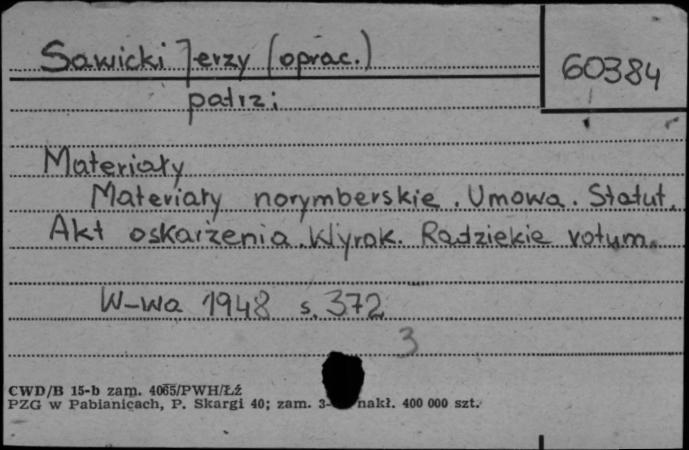 Sawicki Jerzy (oprac.)
60384
patrz:
Materiały
Materiały norymberskie. Umowa. Statut.
Akt oskarżenia. Wyrok. Radzieckie votum.
W-wa 1948 s. 372
3
CWD/B 15-b zam. 4065/PWH/Łź
PZG w Pabianicach, P. Skargi 40; zam. 3- nakł. 400 000 szt.